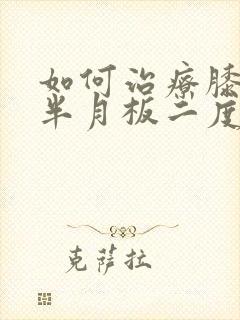 如何治療膝
半月板二度
克薩拉